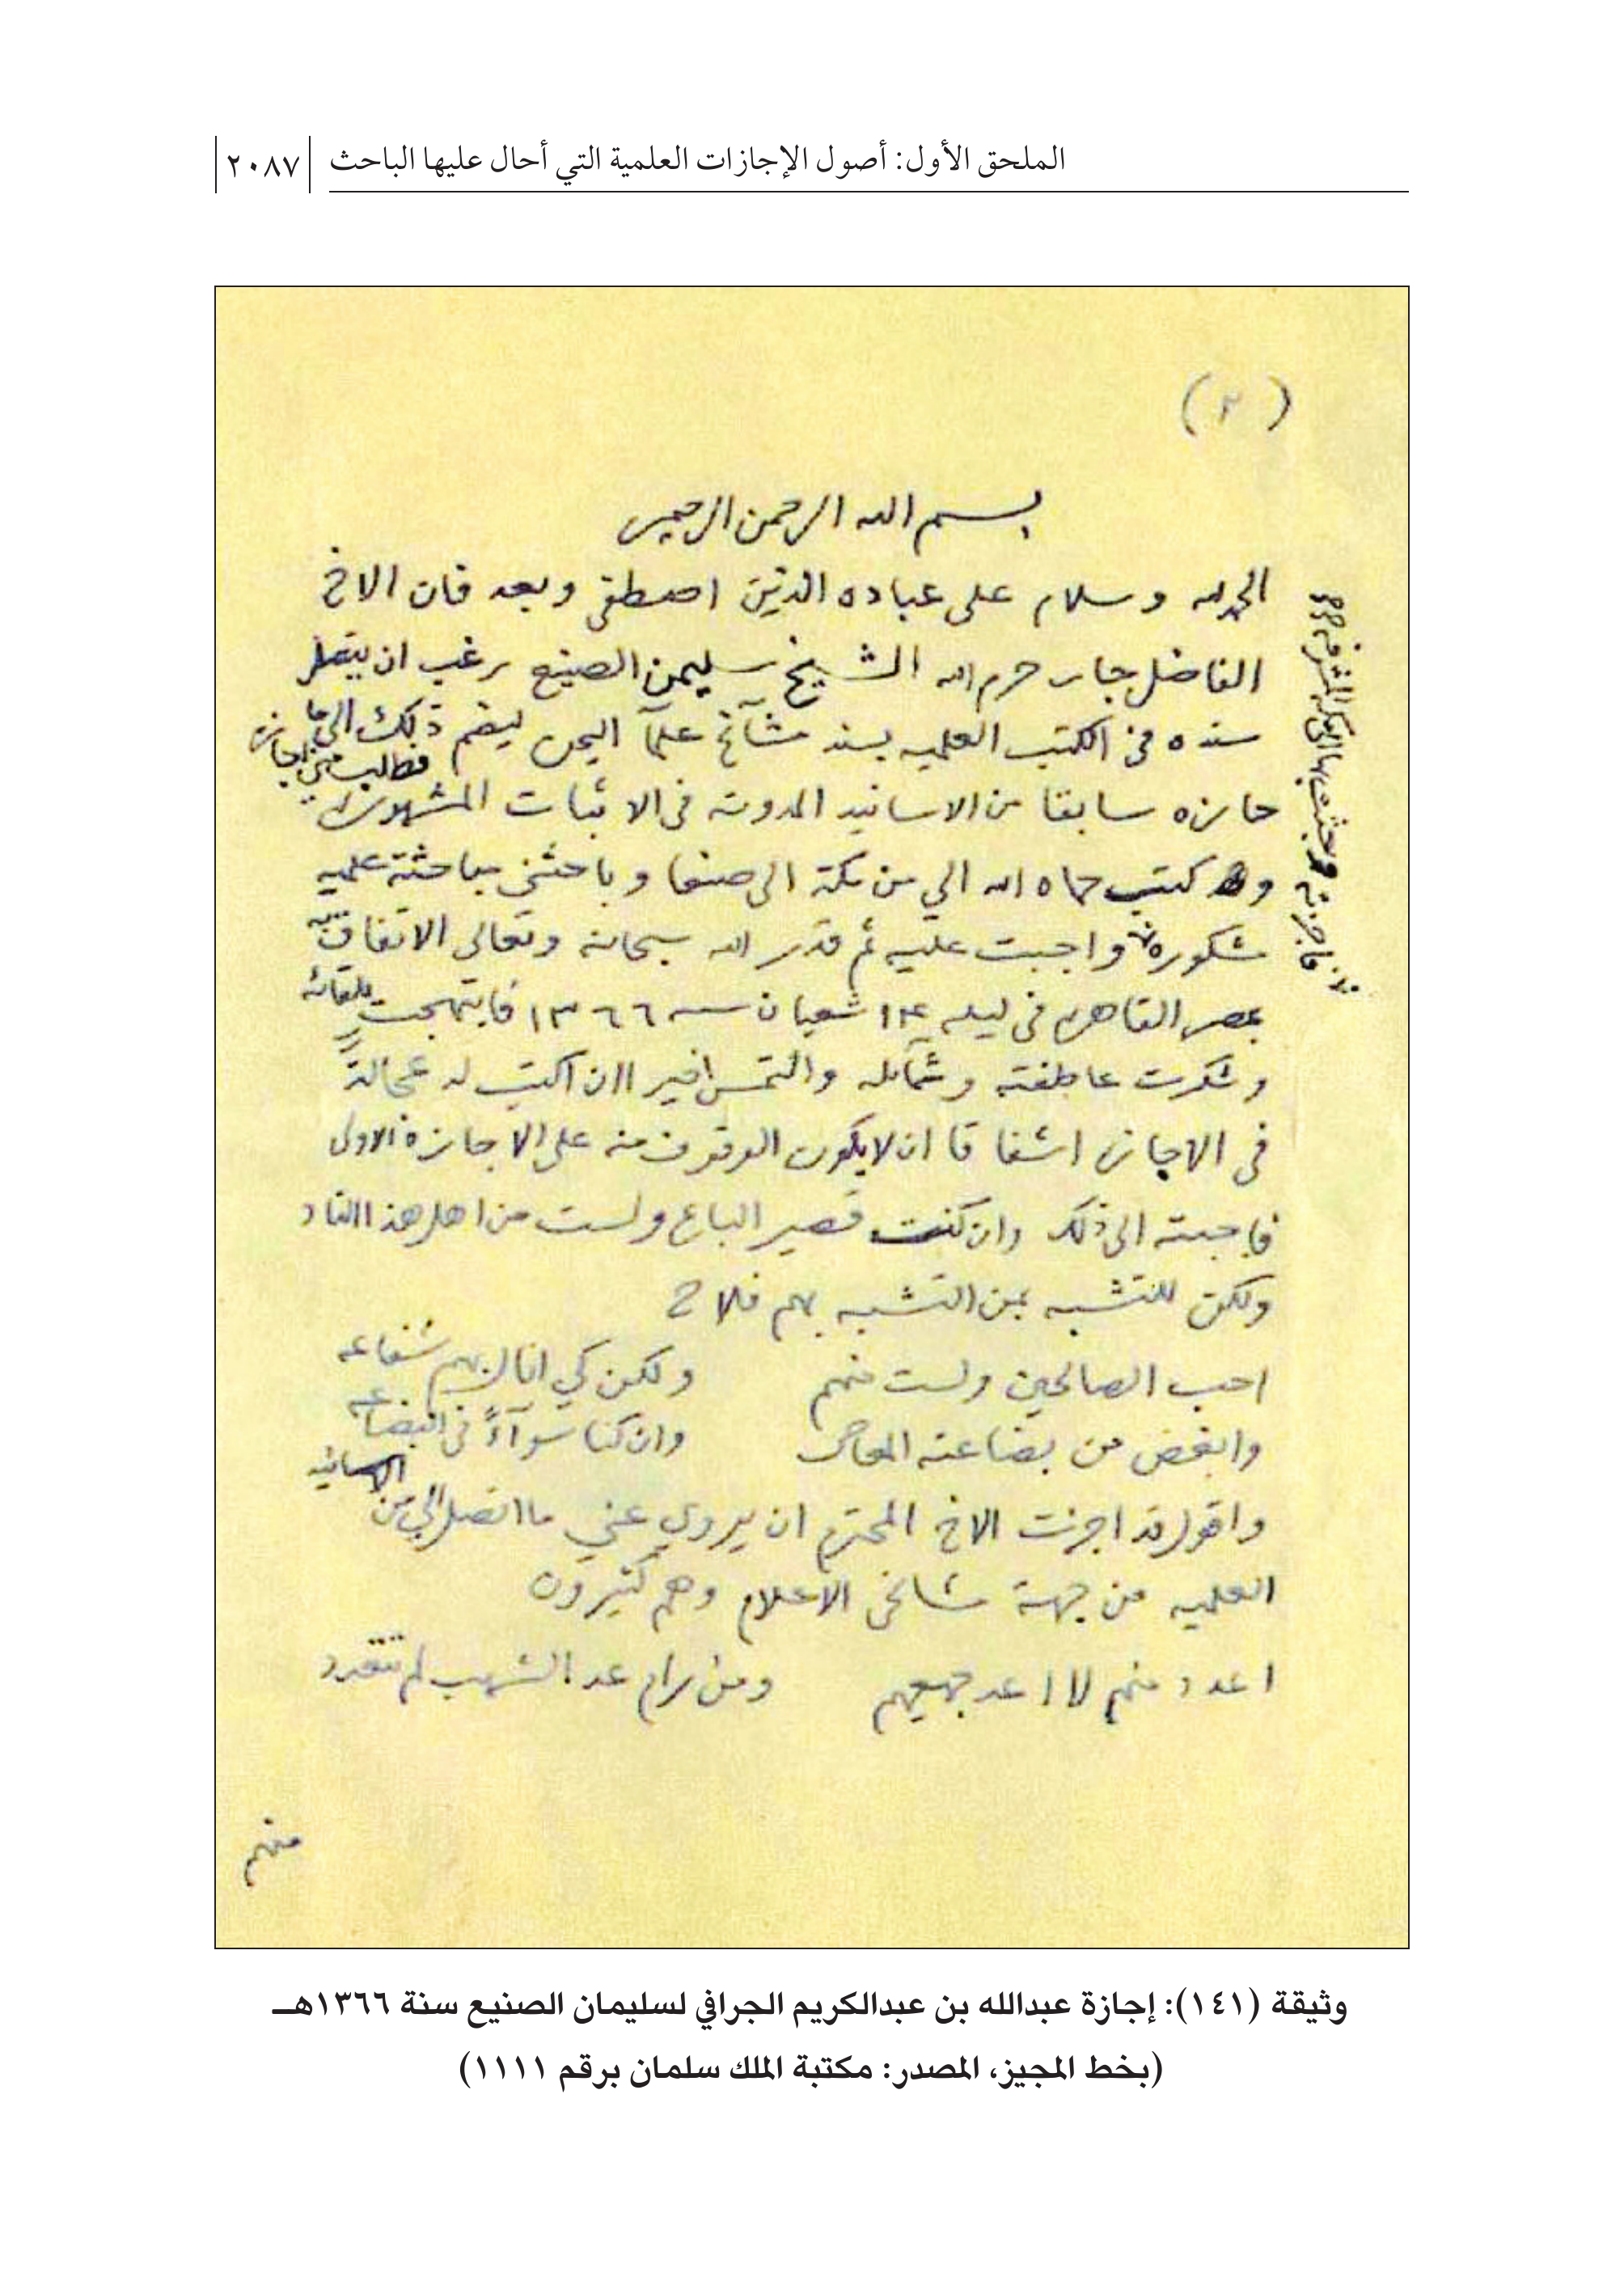 الملحق الأول: أصول الإجازات العلمية التي أحال عليها الباحث ٢٠٨٧
بسم الله الرحمن الرحيم
الحمد لله وسلام على عباده الذين اصطفى وبعد فان الاخ
الفاضل جار حرم الله الشيخ سليمن الصنيع رغب ان يتصل
سنده فى الكتب العلميه بسند مشآئخ علمآ اليمن ليضم ذلك الى ما
فطالب منى اجازة
حازه سابقا من الاسانيد المدونه فى الاثبات المشهوره
كتب حماه الله الي من مكة الى صنعا وباحثنى مباحثة علميه
مشكوره واجبت عليه ثم قدر الله سبحانه وتعالى الاتفاق به
بمصر القاهره فى ليله ١٤ شعبان سنه ١٣٦٦ فابتهجت بلقائه
وشكرت عاطفته وشمآئله والتمس اخيرا ان اكتب له عجالةً
فى الاجازه اشفاقا ان لا يكون الوقوف منه على الاجازة الاولى
فاجبته الى ذلك وان كنت قصير الباع ولست من اهل هذا الناد
ولكن للتشبه بمن التشبه بهم فلاح
احب الصالحين ولست منهم ولكن كي انال بهم شفاعه
وابغض من بضاعته المعاصى وان كنا سوآءً فى البضاعه
واقول قد اجزت الاخ المحترم ان يروي عني ما اتصل الي من الاسانيد
العلميه من جهة مشائخى الاعلام وهم كثيرون
اعدد منهم لا اعد جميعهم ومن رام عد الشهب لم تتعدد
منهم
وثيقة (١٤١): إجازة عبدالله بن عبدالكريم الجرافي لسليمان الصنيع سنة ١٣٦٦هـ
(بخط المجيز، المصدر: مكتبة الملك سلمان برقم ١١١١)